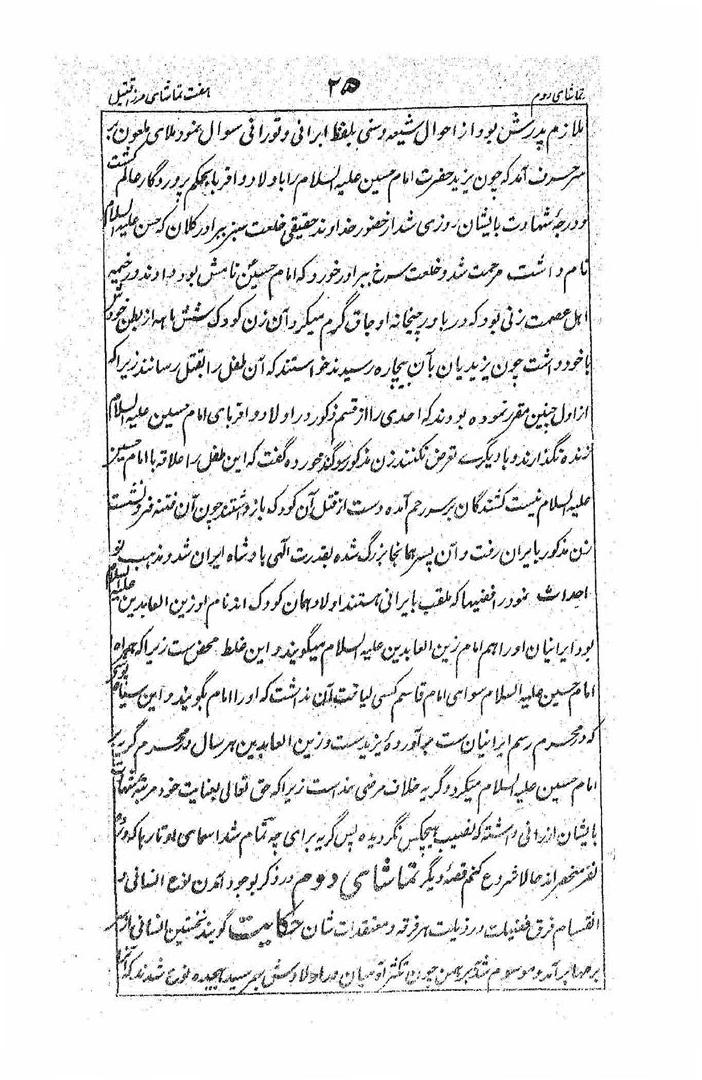 تماشای دوم
۲۵
هفت تماشای مرزا قتیل
ملازم پدرش بود از احوال شیعه و سنی بلفظ ایرانی و تورانی سوال نمود ملای ملعون بر
سر حرف آمد که چون یزید حضرت امام حسین علیه السلام را با اولاد و اقربا بحکم پروردگار عالم کشت
و درجۀ شهادت بایشان روزی شد از حضور خداوند حقیقی خلعت سبز ببرادر کلان که حسن علیه السلام
نام داشت مرحمت شد و خلعت سرخ ببرادر خورد که امام حسین نامش بود دادند و در خیمه
اهل عصمت زنی بود که در باورچیخانه اوجاق گرم میکرد آن زن کودک شش ماهه از بطن خود
با خود داشت چون یزیدیان بآن بیچاره رسیدند خواستند که آن طفل را بقتل رسانند زیرا که
از اول چنین مقرر نموده بودند که احدی را از قسم ذکور در اولاد و اقربای امام حسین علیه السلام
زنده نگذارند و با دیگری تعرض نکنند زن مذکور سوگند خورده گفت که این طفل را علاقه با امام حسین
علیه السلام نیست کشندگان بر سر رحم آمده دست از قتل آن کودک بازداشتند چون آن فتنه فرو نشست
زن مذکور بایران رفت و آن پسر همانجا بزرگ شده بقدرت الهی بادشاه ایران شد و مذهب نو
احداث نمود رافضیها که ملقب بایرانی هستند اولاد همان کودک اند نام او زین العابدین علیه السلام
بود ایرانیان او را هم امام زین العابدین علیه السلام میگویند و این غلط محض ست زیرا که همراه
امام حسین علیه السلام سوای امام قاسم کسی لیاقت آن نداشت که او را امام بگویند و این
که در محرم رسم ایرانیان ست برآوردۀ یزید ست و زین العابدین هر سال در محرم گریه بر
امام حسین علیه السلام میکرد و گریه خلاف مرضی خداست زیرا که حق تعالی بعنایت خود مرتبۀ شهادت
بایشان ارزانی داشته که نصیب هیچکس نگردیده پس گریه برای چه تمام شد اسمای اوتارها که در
نفر منحصر اند حالا شروع کنم قصۀ دیگر تماشای دوم در ذکر بوجود آمدن نوع انسانی و
انقسام فرق فضیلت و رذیلت هر فرقه و معتقدات شان حکایت گویند نخستین انسانی از سر
برهما برآمد و موسوم شد ببرهمن چون تکثر آدمیان در اولادش بهم رسید